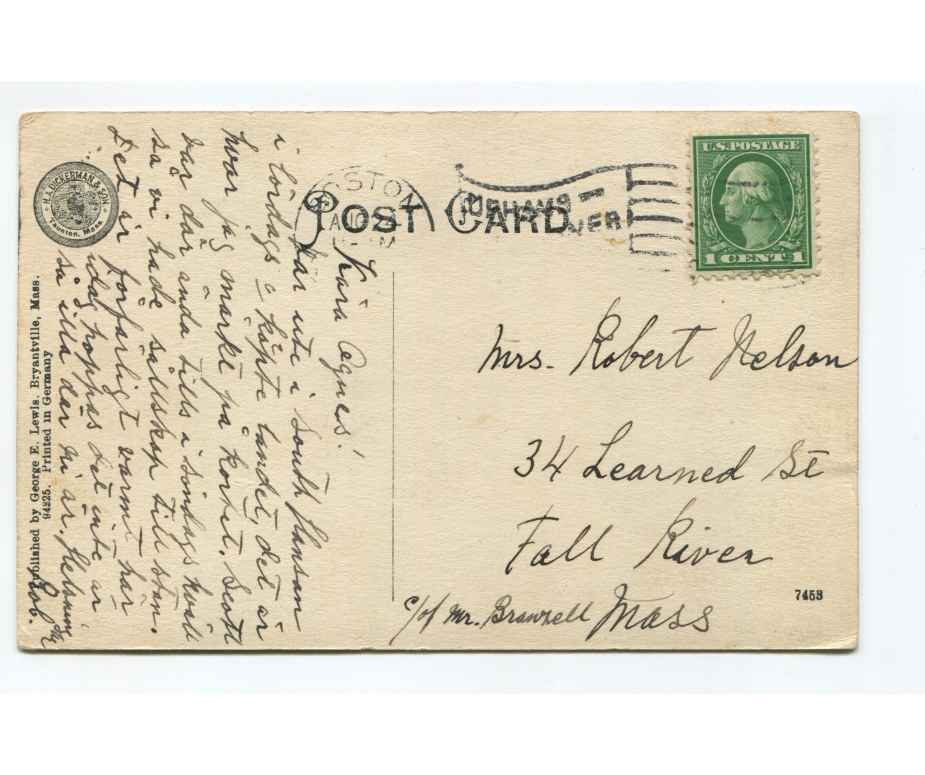 POST CARD
U.S. POSTAGE
1 CENT 1
BOSTON
Kära Agnes!
var ute i South Hanson
i Lördags o köpte landet, det är
hvar jag märke på kortet. Scott
var där ända tills i Söndags kväll
så vi hade sällskap till stan.
Det är förfärligt varmt här
idag hoppas det inte är
så illa där ni är.
Rob.
Mrs. Robert Nelson
34 Learned St
Fall River
c/o Mr. Mass
H.A. DICKERMAN & SON
Taunton, Mass.
Published by George E. Lewis, Bryantville, Mass.
94925. Printed in Germany
7453